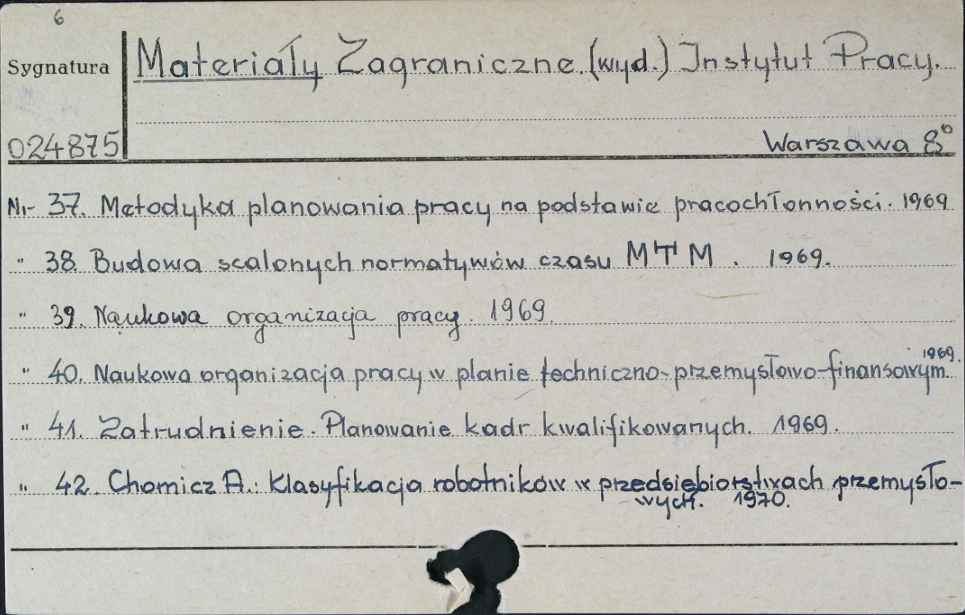 6
Sygnatura Materiały Zagraniczne. (wyd.) Instytut Pracy.
024875 Warszawa 8°
Nr 37. Metodyka planowania pracy na podstawie pracochłonności. 1969
" 38. Budowa scalonych normatywów czasu MTM. 1969.
" 39. Naukowa organizacja pracy. 1969.
" 40. Naukowa organizacja pracy w planie techniczno-przemysłowo-finansowym. 1969.
" 41. Zatrudnienie. Planowanie kadr kwalifikowanych. 1969.
" 42. Chomicz A.: Klasyfikacja robotników w przedsiębiorstwach przemysło-
wych. 1970.